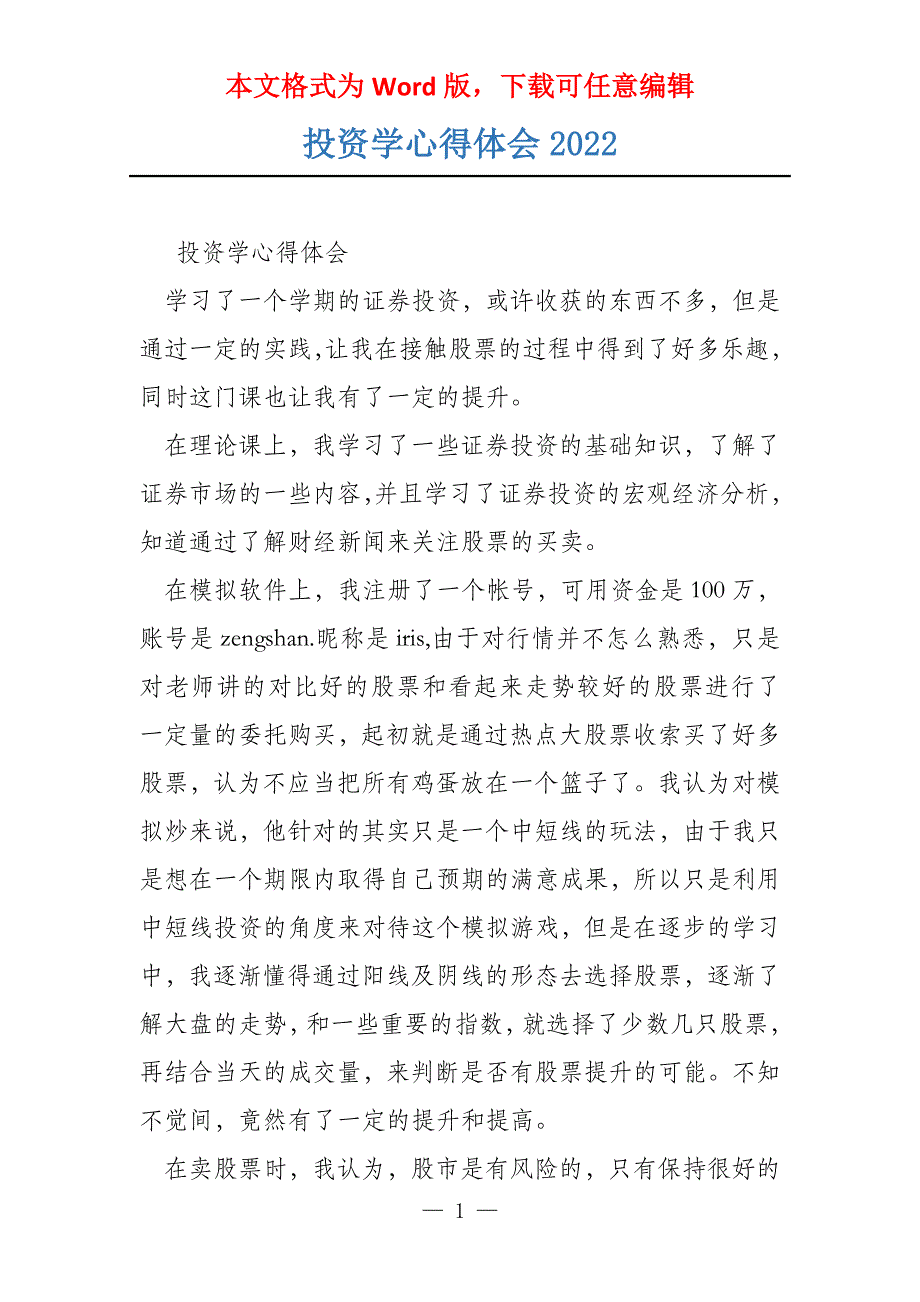 本文格式为 Word 版，下载可任意编辑
投资学心得体会 2022
投资学心得体会
学习了一个学期的证券投资，或许收获的东西不多，但是
通过一定的实践,让我在接触股票的过程中得到了好多乐趣，
同时这门课也让我有了一定的提升。
在理论课上，我学习了一些证券投资的基础知识，了解了
证券市场的一些内容,并且学习了证券投资的宏观经济分析，
知道通过了解财经新闻来关注股票的买卖。
在模拟软件上，我注册了一个帐号，可用资金是 100 万，
账号是 zengshan.昵称是 iris,由于对行情并不怎么熟悉，只是
对老师讲的对比好的股票和看起来走势较好的股票进行了
一定量的委托购买，起初就是通过热点大股票收索买了好多
股票，认为不应当把所有鸡蛋放在一个篮子了。我认为对模
拟炒来说，他针对的其实只是一个中短线的玩法，由于我只
是想在一个期限内取得自己预期的满意成果，所以只是利用
中短线投资的角度来对待这个模拟游戏，但是在逐步的学习
中，我逐渐懂得通过阳线及阴线的形态去选择股票，逐渐了
解大盘的走势，和一些重要的指数，就选择了少数几只股票，
再结合当天的成交量，来判断是否有股票提升的可能。不知
不觉间，竟然有了一定的提升和提高。
在卖股票时，我认为，股市是有风险的，只有保持很好的
— 1 —